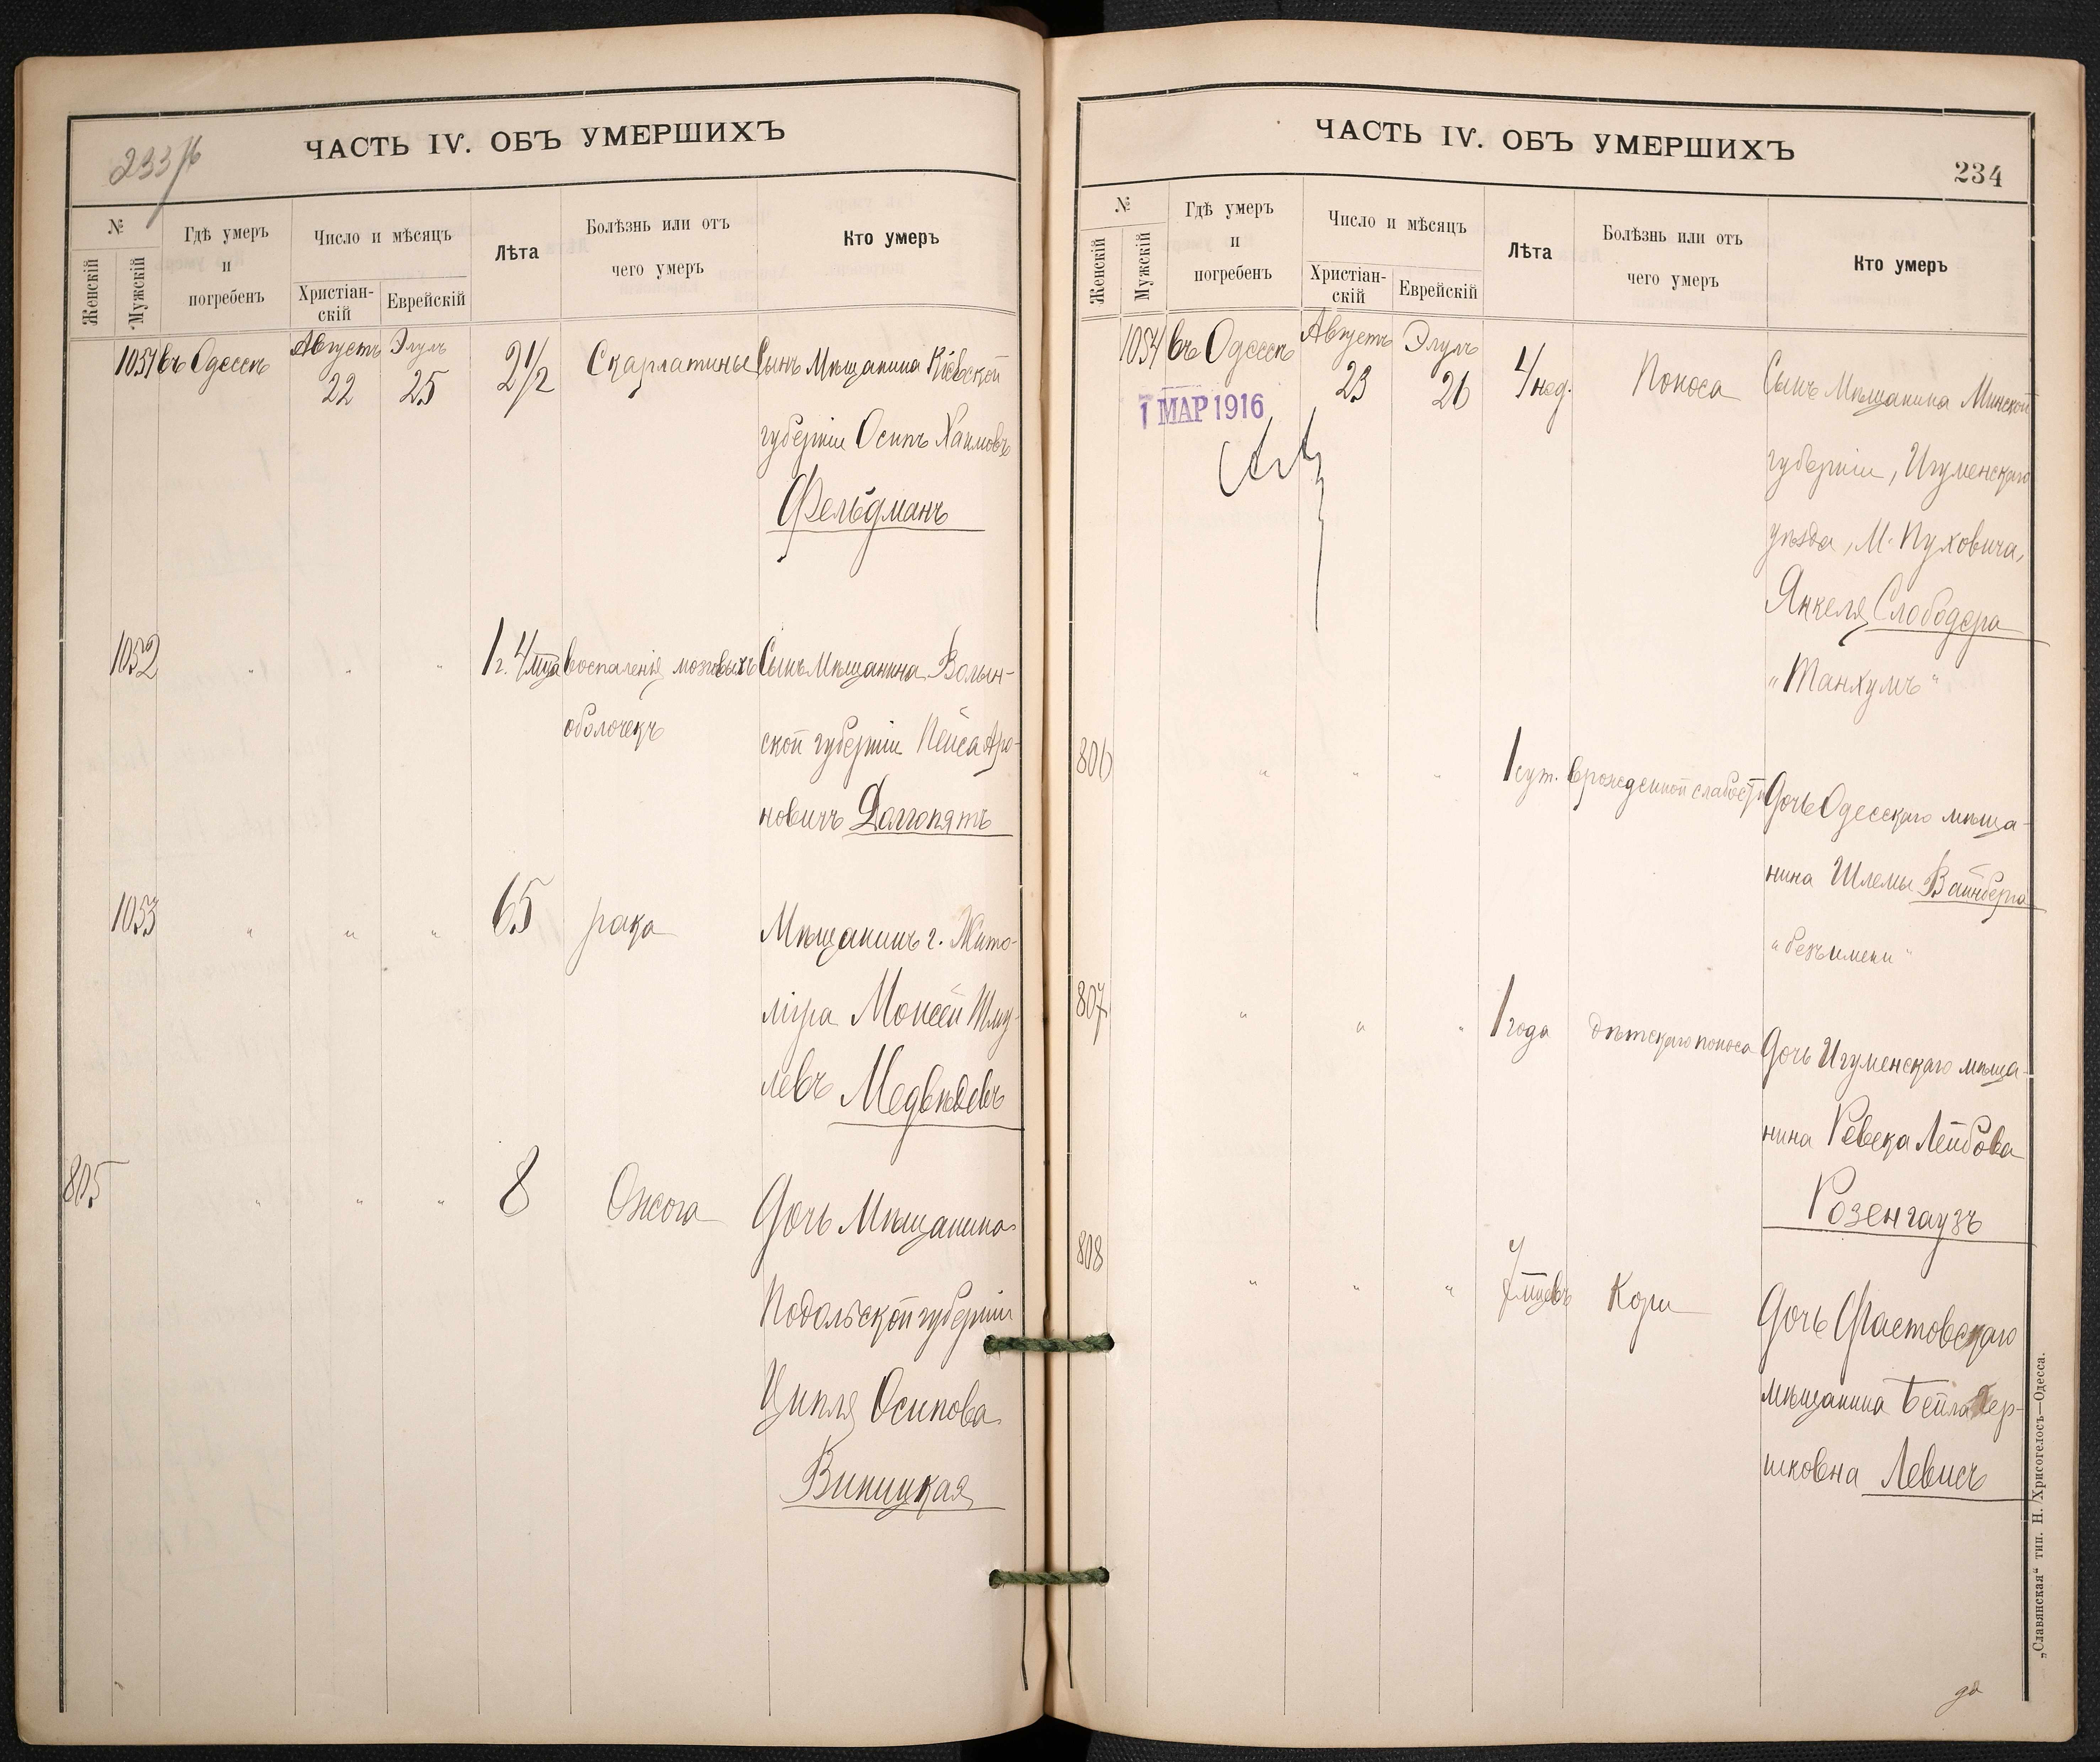 233/б
ЧАСТЬ IV. ОБЪ УМЕРШИХЪ
№
Женскій
Мужскій
Гдѣ умеръ
и
погребенъ
Число и мѣсяцъ
Христіан-
скій
Еврейскій
Лѣта
Болѣзнь или отъ
чего умеръ
Кто умеръ
1051 въ Одессѣ Августъ Элулъ 2 1/2 Скарлатины Сынъ Мѣщанина Кіевской
22 25
губерніи Осипъ Хаимовъ
Фельдманъ
1052 " " " 1 г. 4 мца воспаленія мозговыхъ Сынъ Мѣщанина Волын-
оболочекъ
ской губерніи Пейса Аро-
новичъ Долгопятъ
1053 " " " 65 рака Мѣщанинъ г. Жито-
міра Моисей Шму-
левъ Медвѣдевъ
805 " " " 8 Ожога Дочь Мѣщанина
Подольской губерніи
Ципля Осипова
Виницкая
ЧАСТЬ IV. ОБЪ УМЕРШИХЪ
234
№
Женскій
Мужскій
Гдѣ умеръ
и
погребенъ
Число и мѣсяцъ
Христіан-
скій
Еврейскій
Лѣта
Болѣзнь или отъ
чего умеръ
Кто умеръ
1054 въ Одессѣ Августъ Элулъ 4 нед. Поноса Сынъ Мѣщанина Минской
23 26
1 МАР 1916
губерніи, Игуменскаго
уѣзда, М. Пуховича,
Янкеля Слободера
"Танхумъ"
806 " " " 1 сут. врожденной слабости Дочь Одесскаго мѣща-
нина Шлемы Вайнберга
"безъ имени"
807 " " " 1 года дѣтскаго поноса Дочь Игуменскаго мѣща-
нина Ревека Лейбова
Розенгаузъ
808 " " " 7 мцевъ Кори Дочь Фастовскаго
мѣщанина Бейла Гер-
шковна Левисъ
„Славянская“ тип. Н. Хрисогелосъ—Одесса.